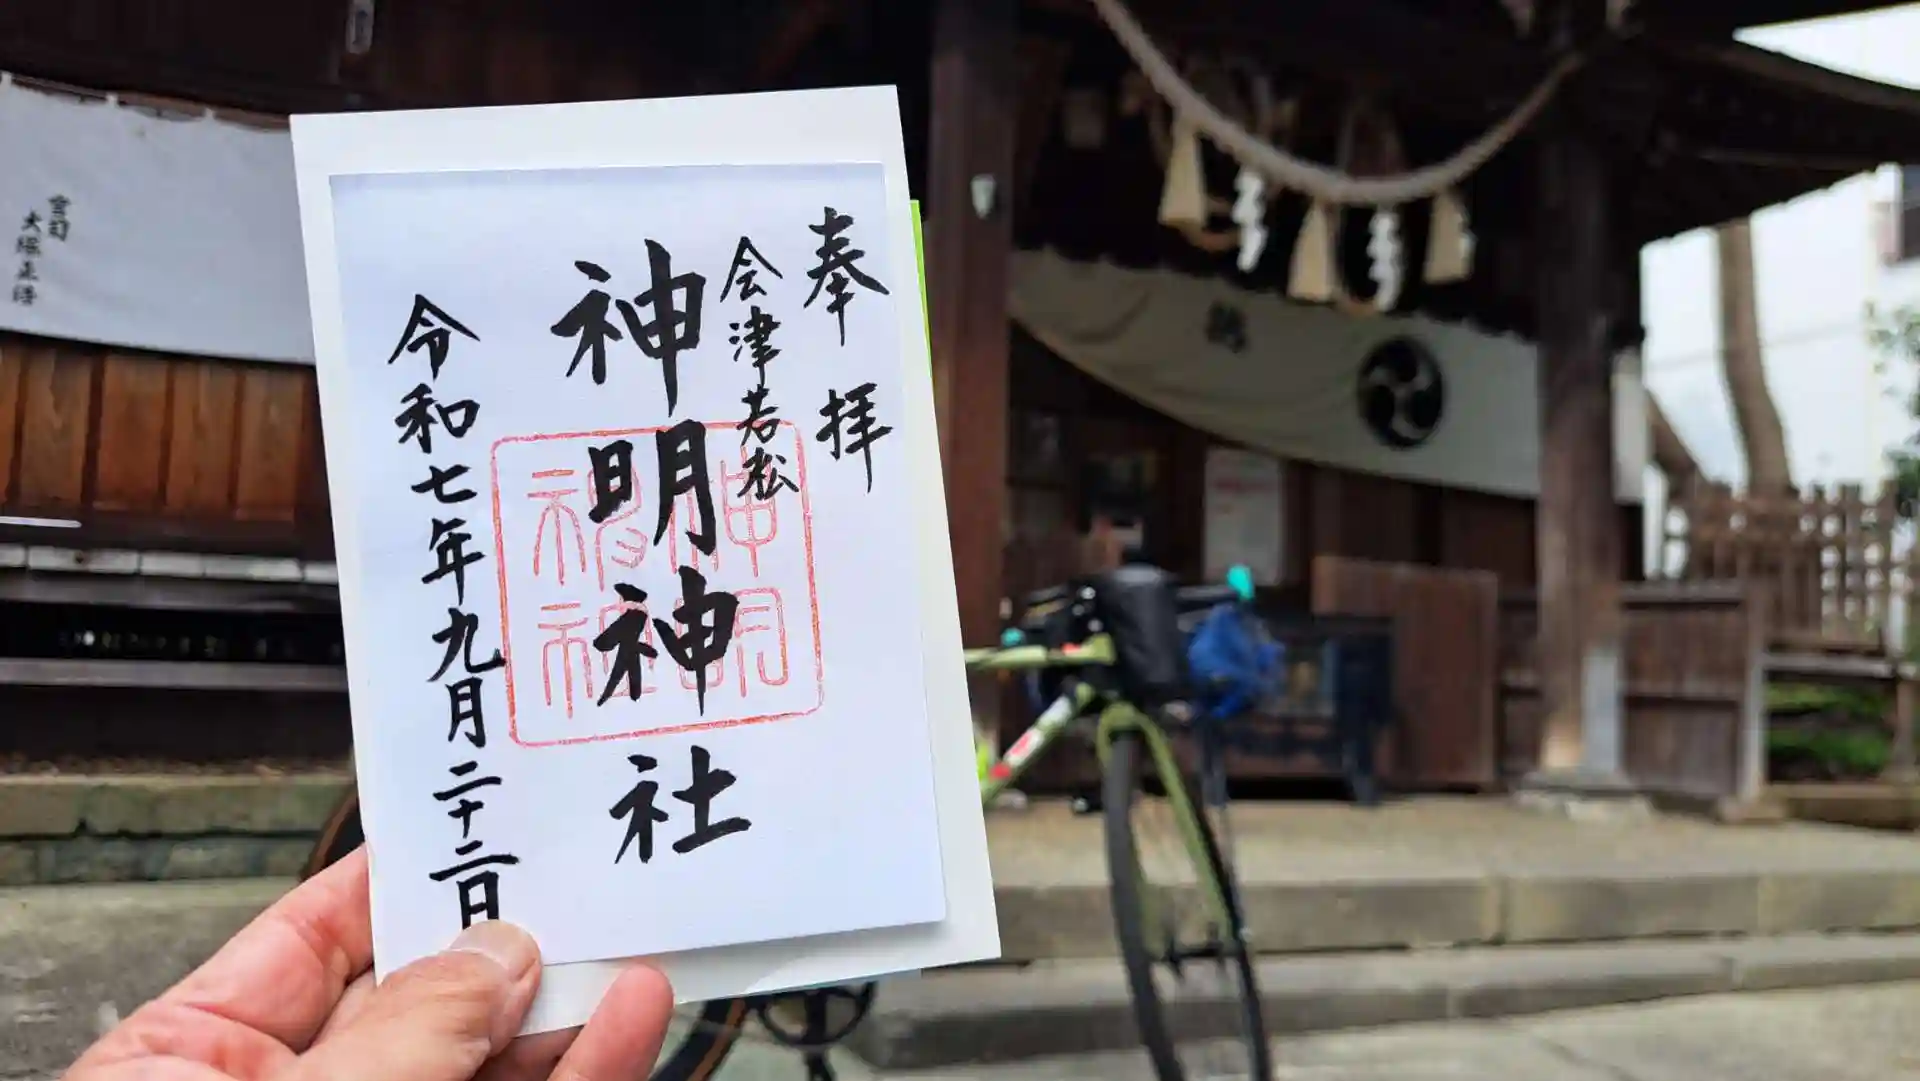 奉拝
会津若松
神明神社
神明
神社
令和七年九月二十二日
宮司